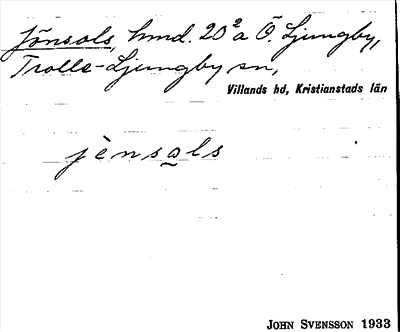 Jönsols, hmd. 20²a Ö. Ljungby,
Trolle-Ljungby sn,
Villands hd, Kristianstads län
jènsals
John Svensson 1933